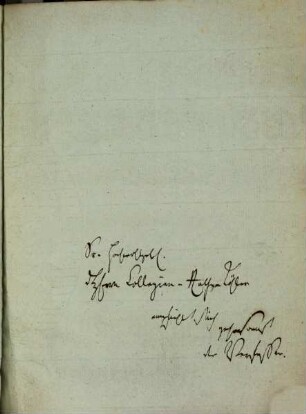 Sr. Hochwohlgeb.
Herrn Collegien-Rath
empfiehlt sich
gehorsamst
der Verfasser.